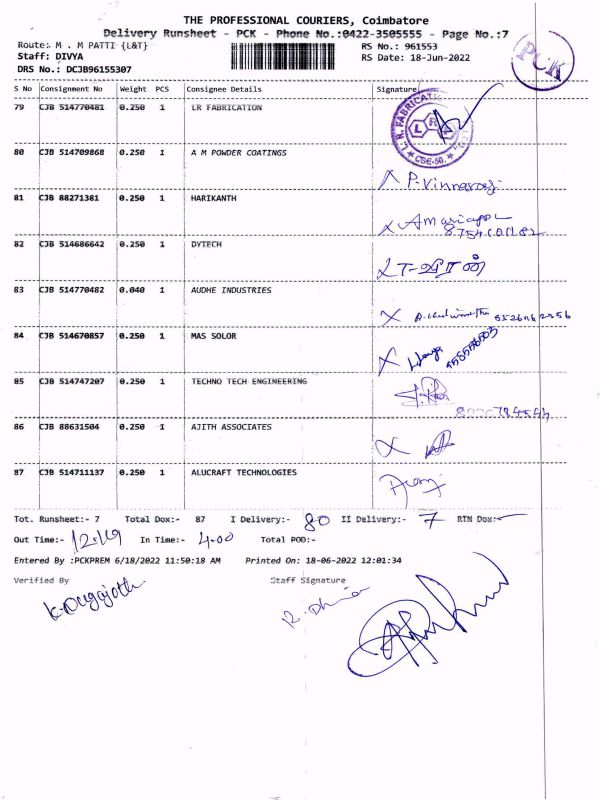 THE PROFESSIONAL COURIERS, Coimbatore
Delivery Runsheet - PCK - Phone No.:0422-3505555 - Page No.:7
Route: M . M PATTI {L&T} RS No.: 961553
Staff: DIVYA RS Date: 18-Jun-2022
DRS No.: DCJB96155307
PCK
S No Consignment No Weight PCS Consignee Details Signature
79 CJB 514770481 0.250 1 LR FABRICATION
80 CJB 514709868 0.250 1 A M POWDER COATINGS
81 CJB 88271381 0.250 1 HARIKANTH
82 CJB 514686642 0.250 1 DYTECH
83 CJB 514770482 0.040 1 AUDHE INDUSTRIES
84 CJB 514670857 0.250 1 MAS SOLOR
85 CJB 514747207 0.250 1 TECHNO TECH ENGINEERING
86 CJB 88631504 0.250 1 AJITH ASSOCIATES
87 CJB 514711137 0.250 1 ALUCRAFT TECHNOLOGIES
Tot. Runsheet:- 7 Total Dox:- 87 I Delivery:- 80 II Delivery:- 7 RTN Dox:-
Out Time:- 12:19 In Time:- 4.00 Total POD:-
Entered By :PCKPREM 6/18/2022 11:50:18 AM Printed On: 18-06-2022 12:01:34
Verified By Staff Signature